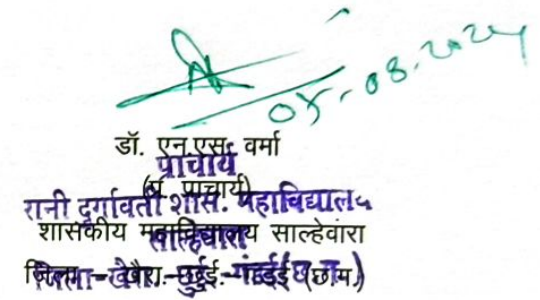 05.08.2024
डॉ. एन.एस. वर्मा
प्राचार्य
(प्र. प्राचार्य)
रानी दुर्गावती शास. महाविद्यालय
शासकीय महाविद्यालय साल्हेवारा
साल्हेवारा
जिला-खैरा.-छुई.-गंडई (छ.ग.)